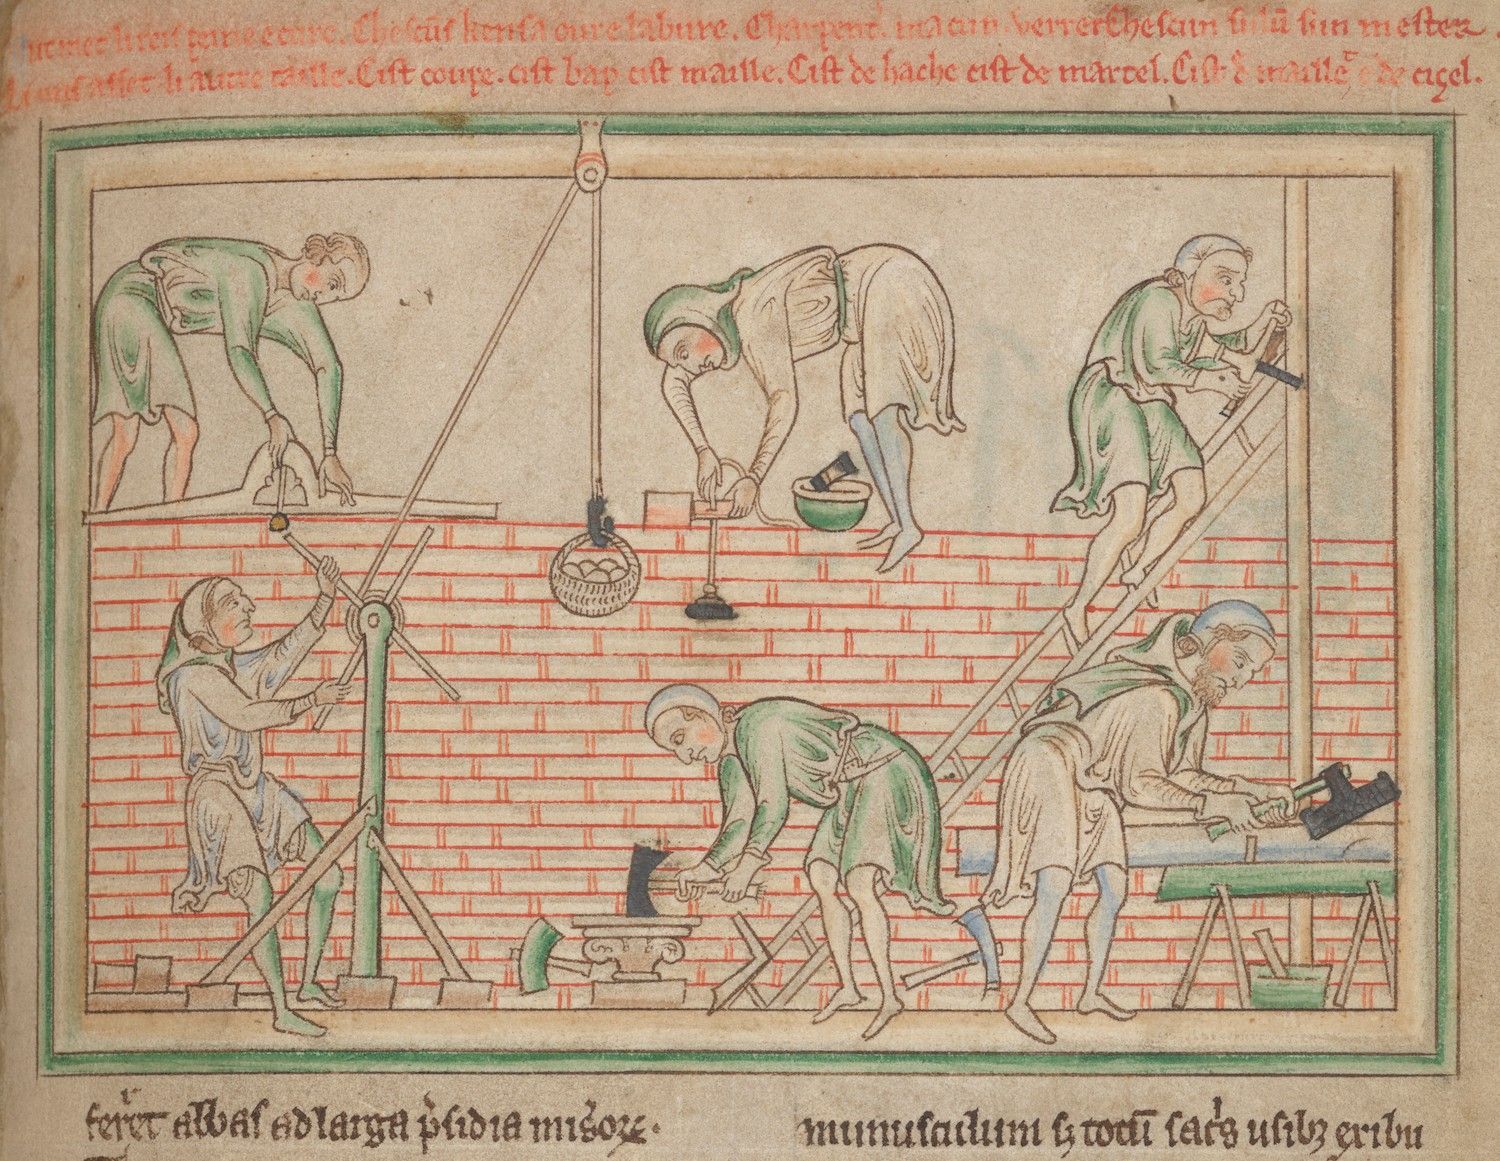 li reis peine e cure. Chescūs kensa oure labure. Charpent' macun verrer Chescun sulū sun mester
asset li autre taille. Cist coupe. cist bap cist maille. Cist de hache cist de martel. Cist d' maillet e de cizel.
fer̾et abbas ad larga p̄sidia mis̾oꝝ.
munusculum ꝫ totū sac̾s usibꝫ